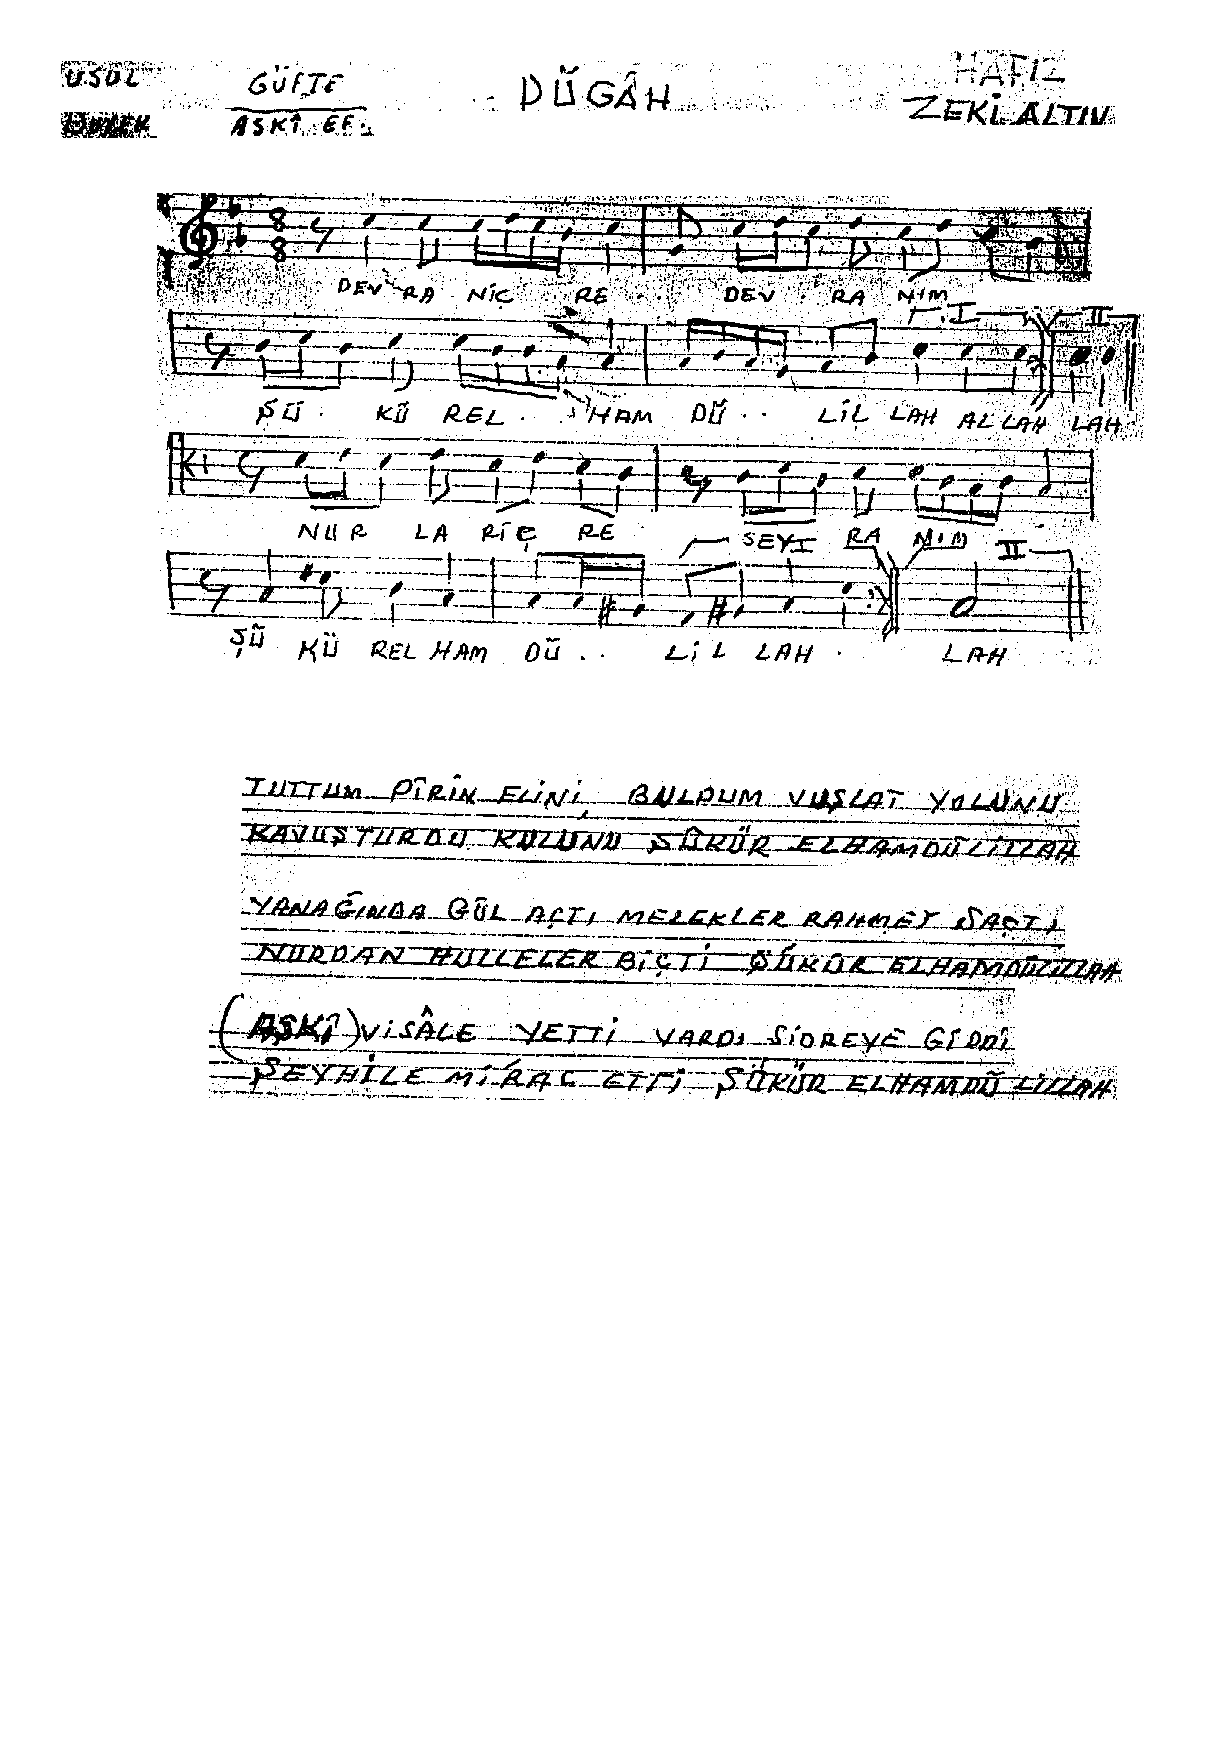 USÛL
GÜFTE
DÜGÂH
HAFIZ
DÜYEK
AŞKÎ EF.
ZEKİ ALTIN
8
8
DEV RA NİÇ RE . . DEV . RA NIM
I II
ŞÜ . KÜ REL . . HAM DÜ . . LİL LAH AL LAH LAH
NUR LA RİÇ RE SEYI RA NIM II
ŞÜ KÜ REL HAM DÜ . . LİL LAH . LAH
TUTTUM PÎRÎN ELİNİ, BULDUM VUSLAT YOLUNU
KAVUŞTURDU KULUNU ŞÜKÜR ELHAMDÜLİLLAH
YANAĞINDA GÜL AÇTI MELEKLER RAHMET SAÇTI
NURDAN HULLELER BİÇTİ ŞÜKÜR ELHAMDÜLİLLAH
(AŞKÎ) VİSÂLE YETTİ VARDI SİDREYE GİDDİ
ŞEYHİLE MİRAC ETTİ ŞÜKÜR ELHAMDÜ LİLLAH